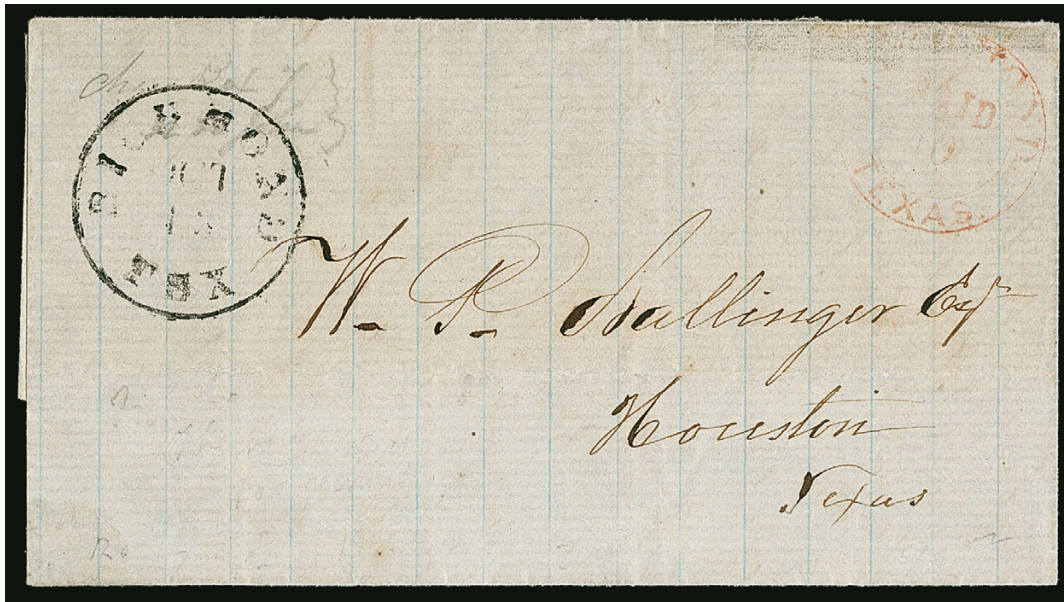 RICHMOND
OCT
TEX
PAID
TEXAS.
W. P. Ballinger Esqr
Houston
Texas